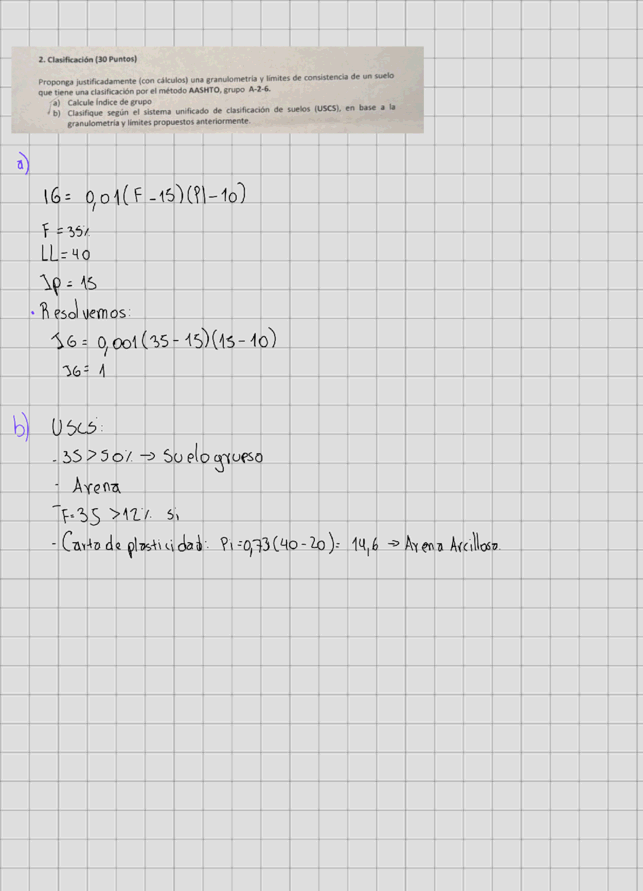 2. Clasificación (30 Puntos)
Proponga justificadamente (con cálculos) una granulometría y límites de consistencia de un suelo
que tiene una clasificación por el método AASHTO, grupo A-2-6.
a) Calcule Índice de grupo
b) Clasifique según el sistema unificado de clasificación de suelos (USCS), en base a la
granulometría y límites propuestos anteriormente.
a)
IG = 0,01(F - 15)(PI - 10)
F = 35%
LL = 40
Ip = 15
· Resolvemos:
IG = 0,001(35 - 15)(15 - 10)
IG = 1
b) USCS:
- 35 > 50% → Suelo grueso
- Arena
- F = 35 > 12% Si
- Carta de plasticidad: Pi = 0,73(40 - 20) = 14,6 → Arena Arcillosa.